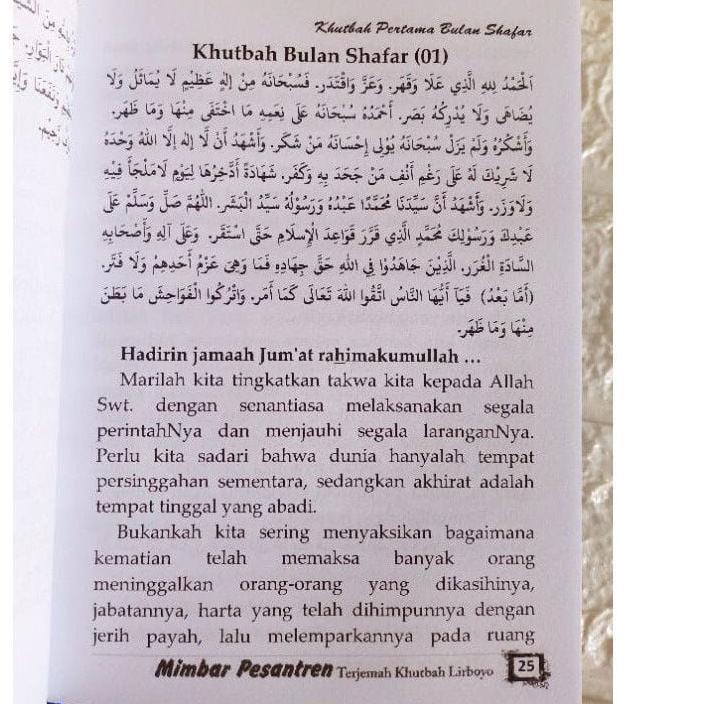 Khutbah Pertama Bulan Shafar
Khutbah Bulan Shafar (01)
اَلْحَمْدُ لِلهِ الَّذِي عَلَا وَقَهَرَ. وَعَزَّ وَاقْتَدَرَ. فَسُبْحَانَهُ مِنْ اِلٰهٍ عَظِيْمٍ لَا يُمَاثَلُ وَلَا
يُضَاهَى وَلَا يُدْرِكُهُ بَصَر. أَحْمَدُهُ سُبْحَانَهُ عَلَى نِعَمِهِ مَا اخْتَفَى مِنْهَا وَمَا ظَهَر.
وَأَشْكُرُهُ وَلَمْ يَزَلْ سُبْحَانَهُ يُوْلِى إِحْسَانَهُ مَنْ شَكَر. وَأَشْهَدُ أَنْ لَا إِلٰهَ إِلَّا اللهُ وَحْدَهُ
لَا شَرِيْكَ لَهُ عَلَى رَغْمِ أَنْفِ مَنْ جَحَدَ بِهِ وَكَفَر. شَهَادَةً أَدَّخِرُهَا لِيَوْمٍ لَامَلْجَأَ فِيْهِ
وَلَاوَزَر. وَأَشْهَدُ أَنَّ سَيِّدَنَا مُحَمَّدًا عَبْدُهُ وَرَسُوْلُهُ سَيِّدُ الْبَشَر. اَللّٰهُمَّ صَلِّ وَسَلِّمْ عَلَى
عَبْدِكَ وَرَسُوْلِكَ مُحَمَّدٍ الَّذِي قَرَّرَ قَوَاعِدَ الْإِسْلَامِ حَتَّى اسْتَقَر. وَعَلَى آلِهِ وَأَصْحَابِهِ
السَّادَةِ الْغُرَر. الَّذِيْنَ جَاهَدُوْا فِي اللهِ حَقَّ جِهَادِهِ فَمَا وَهِيَ عَزْمُ أَحَدِهِمْ وَلَا فَتَر.
(أَمَّا بَعْدُ) فَيَآ أَيُّهَا النَّاسُ اتَّقُوا اللهَ تَعَالَى كَمَا أَمَر. وَاتْرُكُوا الْفَوَاحِشَ مَا بَطَنَ
مِنْهَا وَمَا ظَهَر.
Hadirin jamaah Jum'at rahimakumullah ...
Marilah kita tingkatkan takwa kita kepada Allah
Swt. dengan senantiasa melaksanakan segala
perintahNya dan menjauhi segala laranganNya.
Perlu kita sadari bahwa dunia hanyalah tempat
persinggahan sementara, sedangkan akhirat adalah
tempat tinggal yang abadi.
Bukankah kita sering menyaksikan bagaimana
kematian telah memaksa banyak orang
meninggalkan orang-orang yang dikasihinya,
jabatannya, harta yang telah dihimpunnya dengan
jerih payah, lalu melemparkannya pada ruang
Mimbar Pesantren Terjemah Khutbah Lirboyo 25